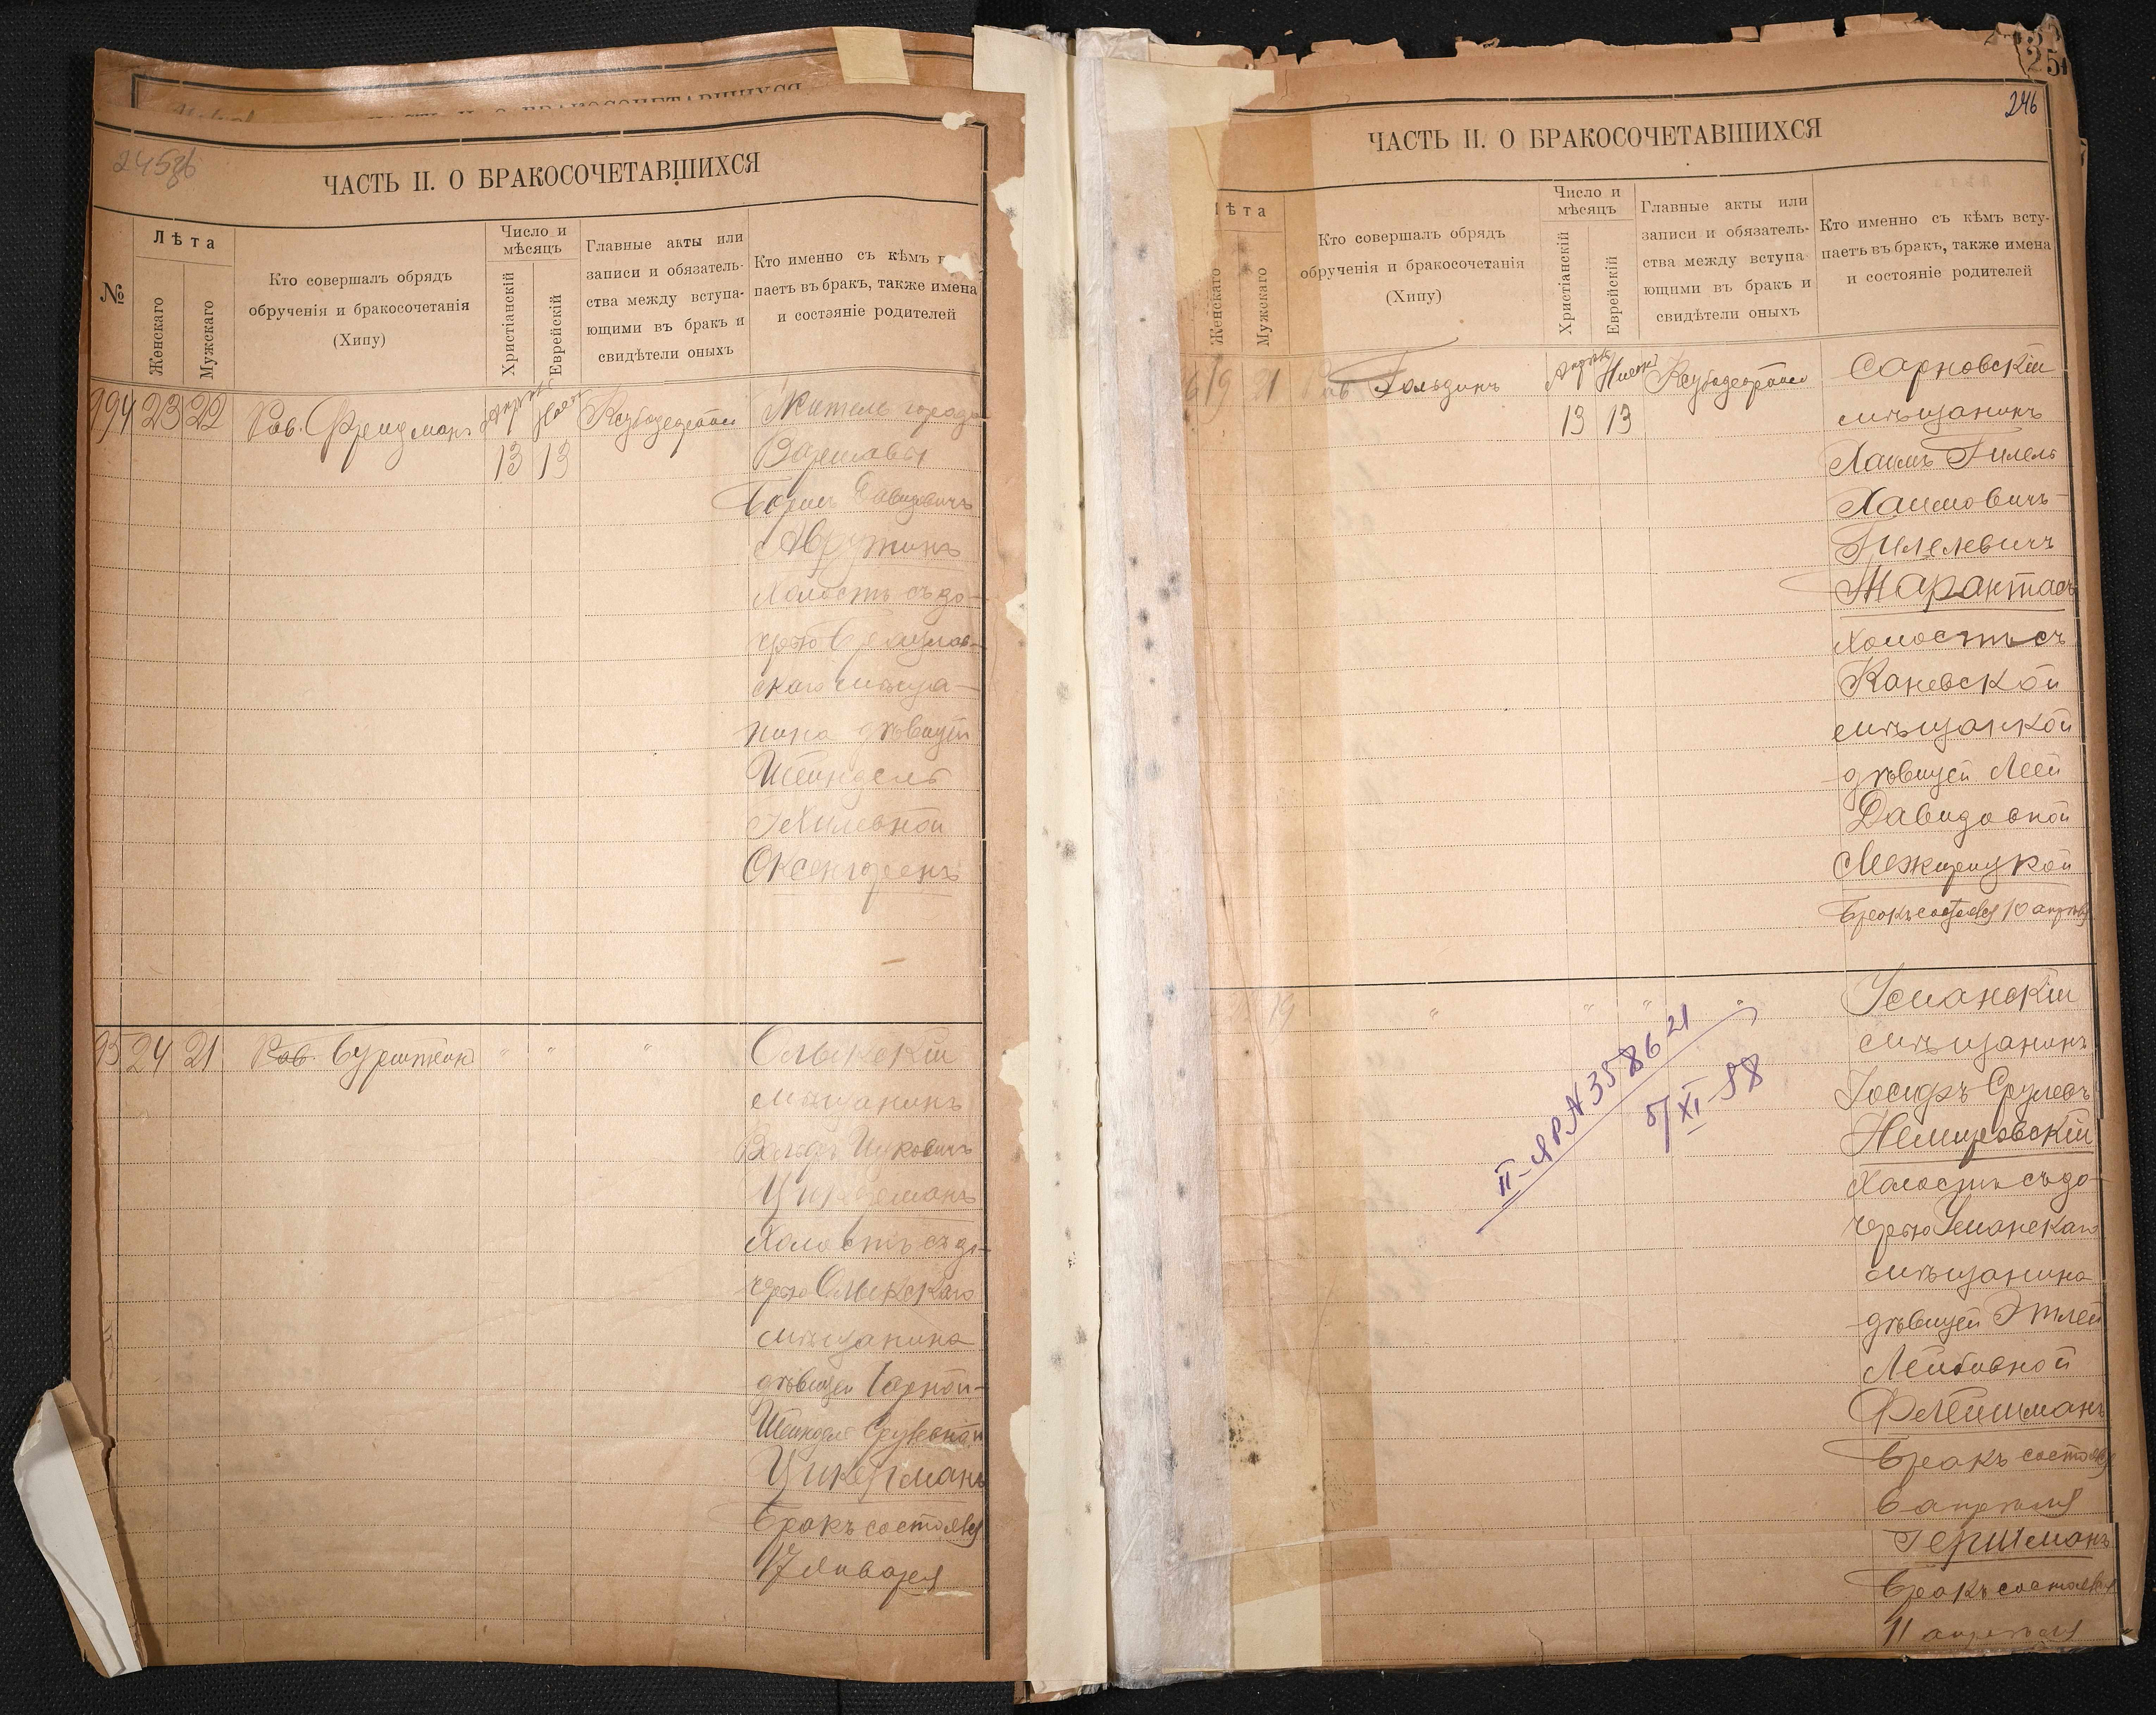 245об
ЧАСТЬ II. О БРАКОСОЧЕТАВШИХСЯ
№
Лѣта
Женскаго
Мужскаго
Кто совершалъ обрядъ
обрученія и бракосочетанія
(Хипу)
Число и
мѣсяцъ
Христіанскій
Еврейскій
Главные акты или
записи и обязатель-
ства между вступа-
ющими въ бракъ и
свидѣтели оныхъ
Кто именно съ кѣмъ
паетъ въ бракъ, также имена
и состояніе родителей
194 23 22 Рав. Фридманъ
13 13
Житель города
Варшавы
Давидовичъ
Аврутинъ
холостъ съ до-
черью
скаго мѣща-
нина дѣвицей
Шейндель
Оксенгоренъ
95 24 21 Рав. Бурштейн " " "
Олыкскій
мѣщанинъ
Вольфъ Ицковичъ
Цикерманъ
холостъ съ до-
черью Олыкскаго
мѣщанина
дѣвицей
Шейндель Срулевной
Цикерманъ
Бракъ состоялся
17 Января
246
ЧАСТЬ II. О БРАКОСОЧЕТАВШИХСЯ
ѣта
Женскаго
Мужскаго
Кто совершалъ обрядъ
обрученія и бракосочетанія
(Хипу)
Число и
мѣсяцъ
Христіанскій
Еврейскій
Главные акты или
записи и обязатель-
ства между вступа-
ющими въ бракъ и
свидѣтели оныхъ
Кто именно съ кѣмъ всту-
паетъ въ бракъ, также имена
и состояніе родителей
6 19 21 Рав. Гольдинъ
13 13
Сарновскій
мѣщанинъ
Хаимъ Гилель
Хаимовичъ-
Гилелевичъ
Тарантасъ
холостъ съ
Каневской
мѣщанкой
дѣвицей Леей
Давидовной
Межирицкой
Бракъ состоялся 10 апрѣля
19 " " " "
Уманскій
мѣщанинъ
Іосифъ Срулевъ
Немировскій
холостъ съ до-
черью Уманскаго
мѣщанина
дѣвицей Этлей
Лейбовной
Флейшманъ
Бракъ состоялся
6 апрѣля
Гершманъ
Бракъ состоялся
11 апрѣля
5/XI-58